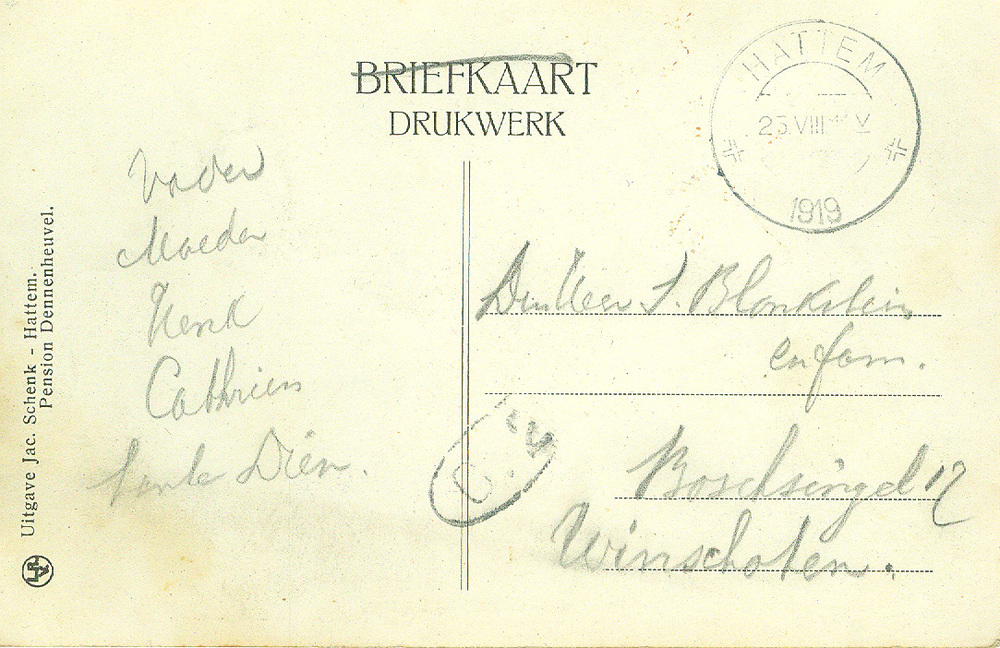 BRIEFKAART
DRUKWERK
HATTEM
23.VIII
V
1919
Vader
Moeder
Henk
Cathrien
tante Dien.
Den Heer S. Blonkstein
en fam.
Boschsingel 12
Winschoten.
Uitgave Jac. Schenk - Hattem.
Pension Dennenheuvel.